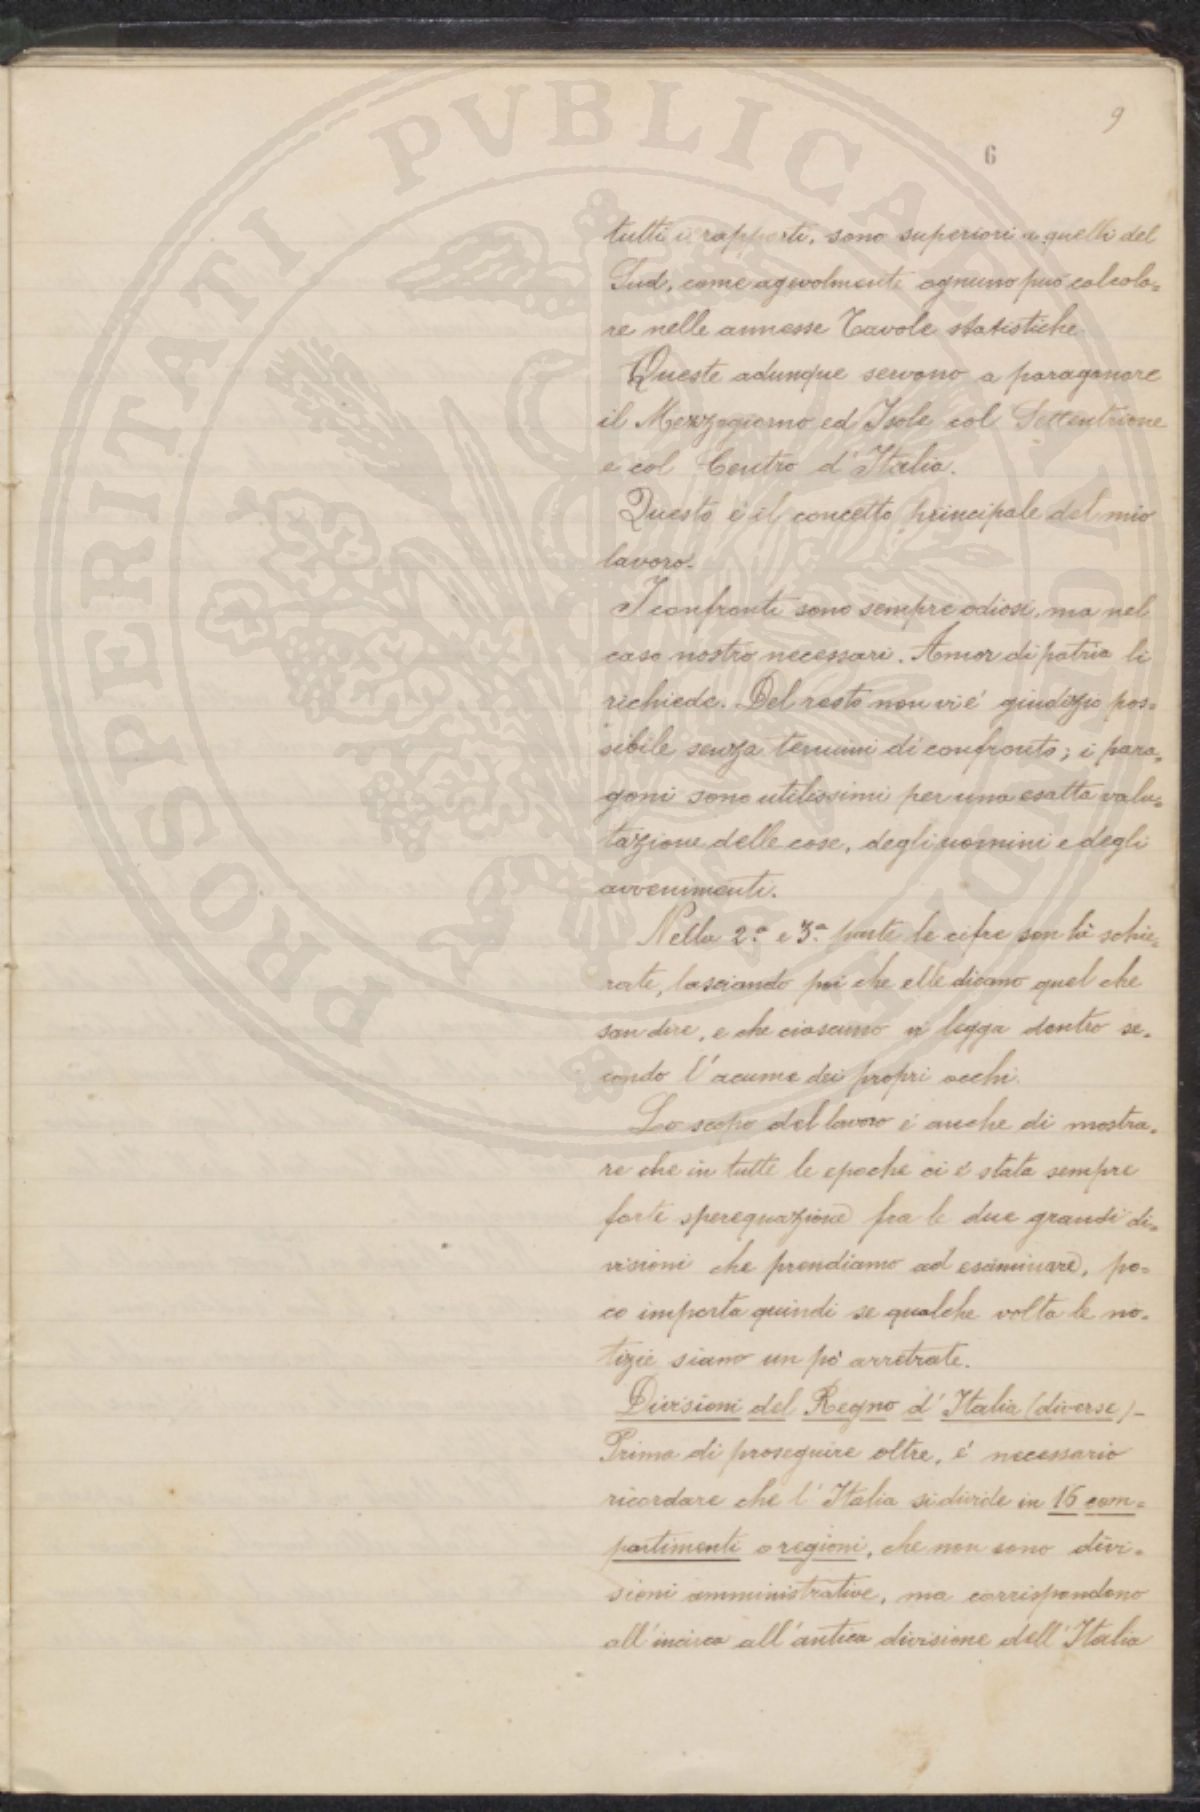 9
6
tutti i rapporti, sono superiori a quelli del
Sud, come agevolmente ognuno può calcola=
re nelle annesse Tavole statistiche.
Queste adunque servono a paragonare
il Mezzogiorno ed Isole col Settentrione
e col Centro d'Italia.
Questo è il concetto principale del mio
lavoro.
I confronti sono sempre odiosi, ma nel
caso nostro necessari. Amor di patria li
richiede. Del resto non vi è giudizio pos=
sibile senza termini di confronto; i para=
goni sono utilissimi per una esatta valu=
tazione delle cose, degli uomini e degli
avvenimenti.
Nella 2.a e 3.a parte le cifre son là schie=
rate, lasciando poi che elle dicano quel che
san dire, e che ciascuno vi legga dentro se=
condo l'acume dei propri occhi.
Lo scopo del lavoro è anche di mostra=
re che in tutte le epoche ci è stata sempre
forte sperequazione fra le due grandi di=
visioni che prendiamo ad esaminare, po=
co importa quindi se qualche volta le no=
tizie siano un pò arretrate.
Divisioni del Regno d'Italia (diverse) –
Prima di proseguire oltre, è necessario
ricordare che l'Italia si divide in 16 com=
partimenti o regioni, che non sono divi=
sioni amministrative, ma corrispondono
all'incirca all'antica divisione dell'Italia
PROSPERITATI PVBLICAE